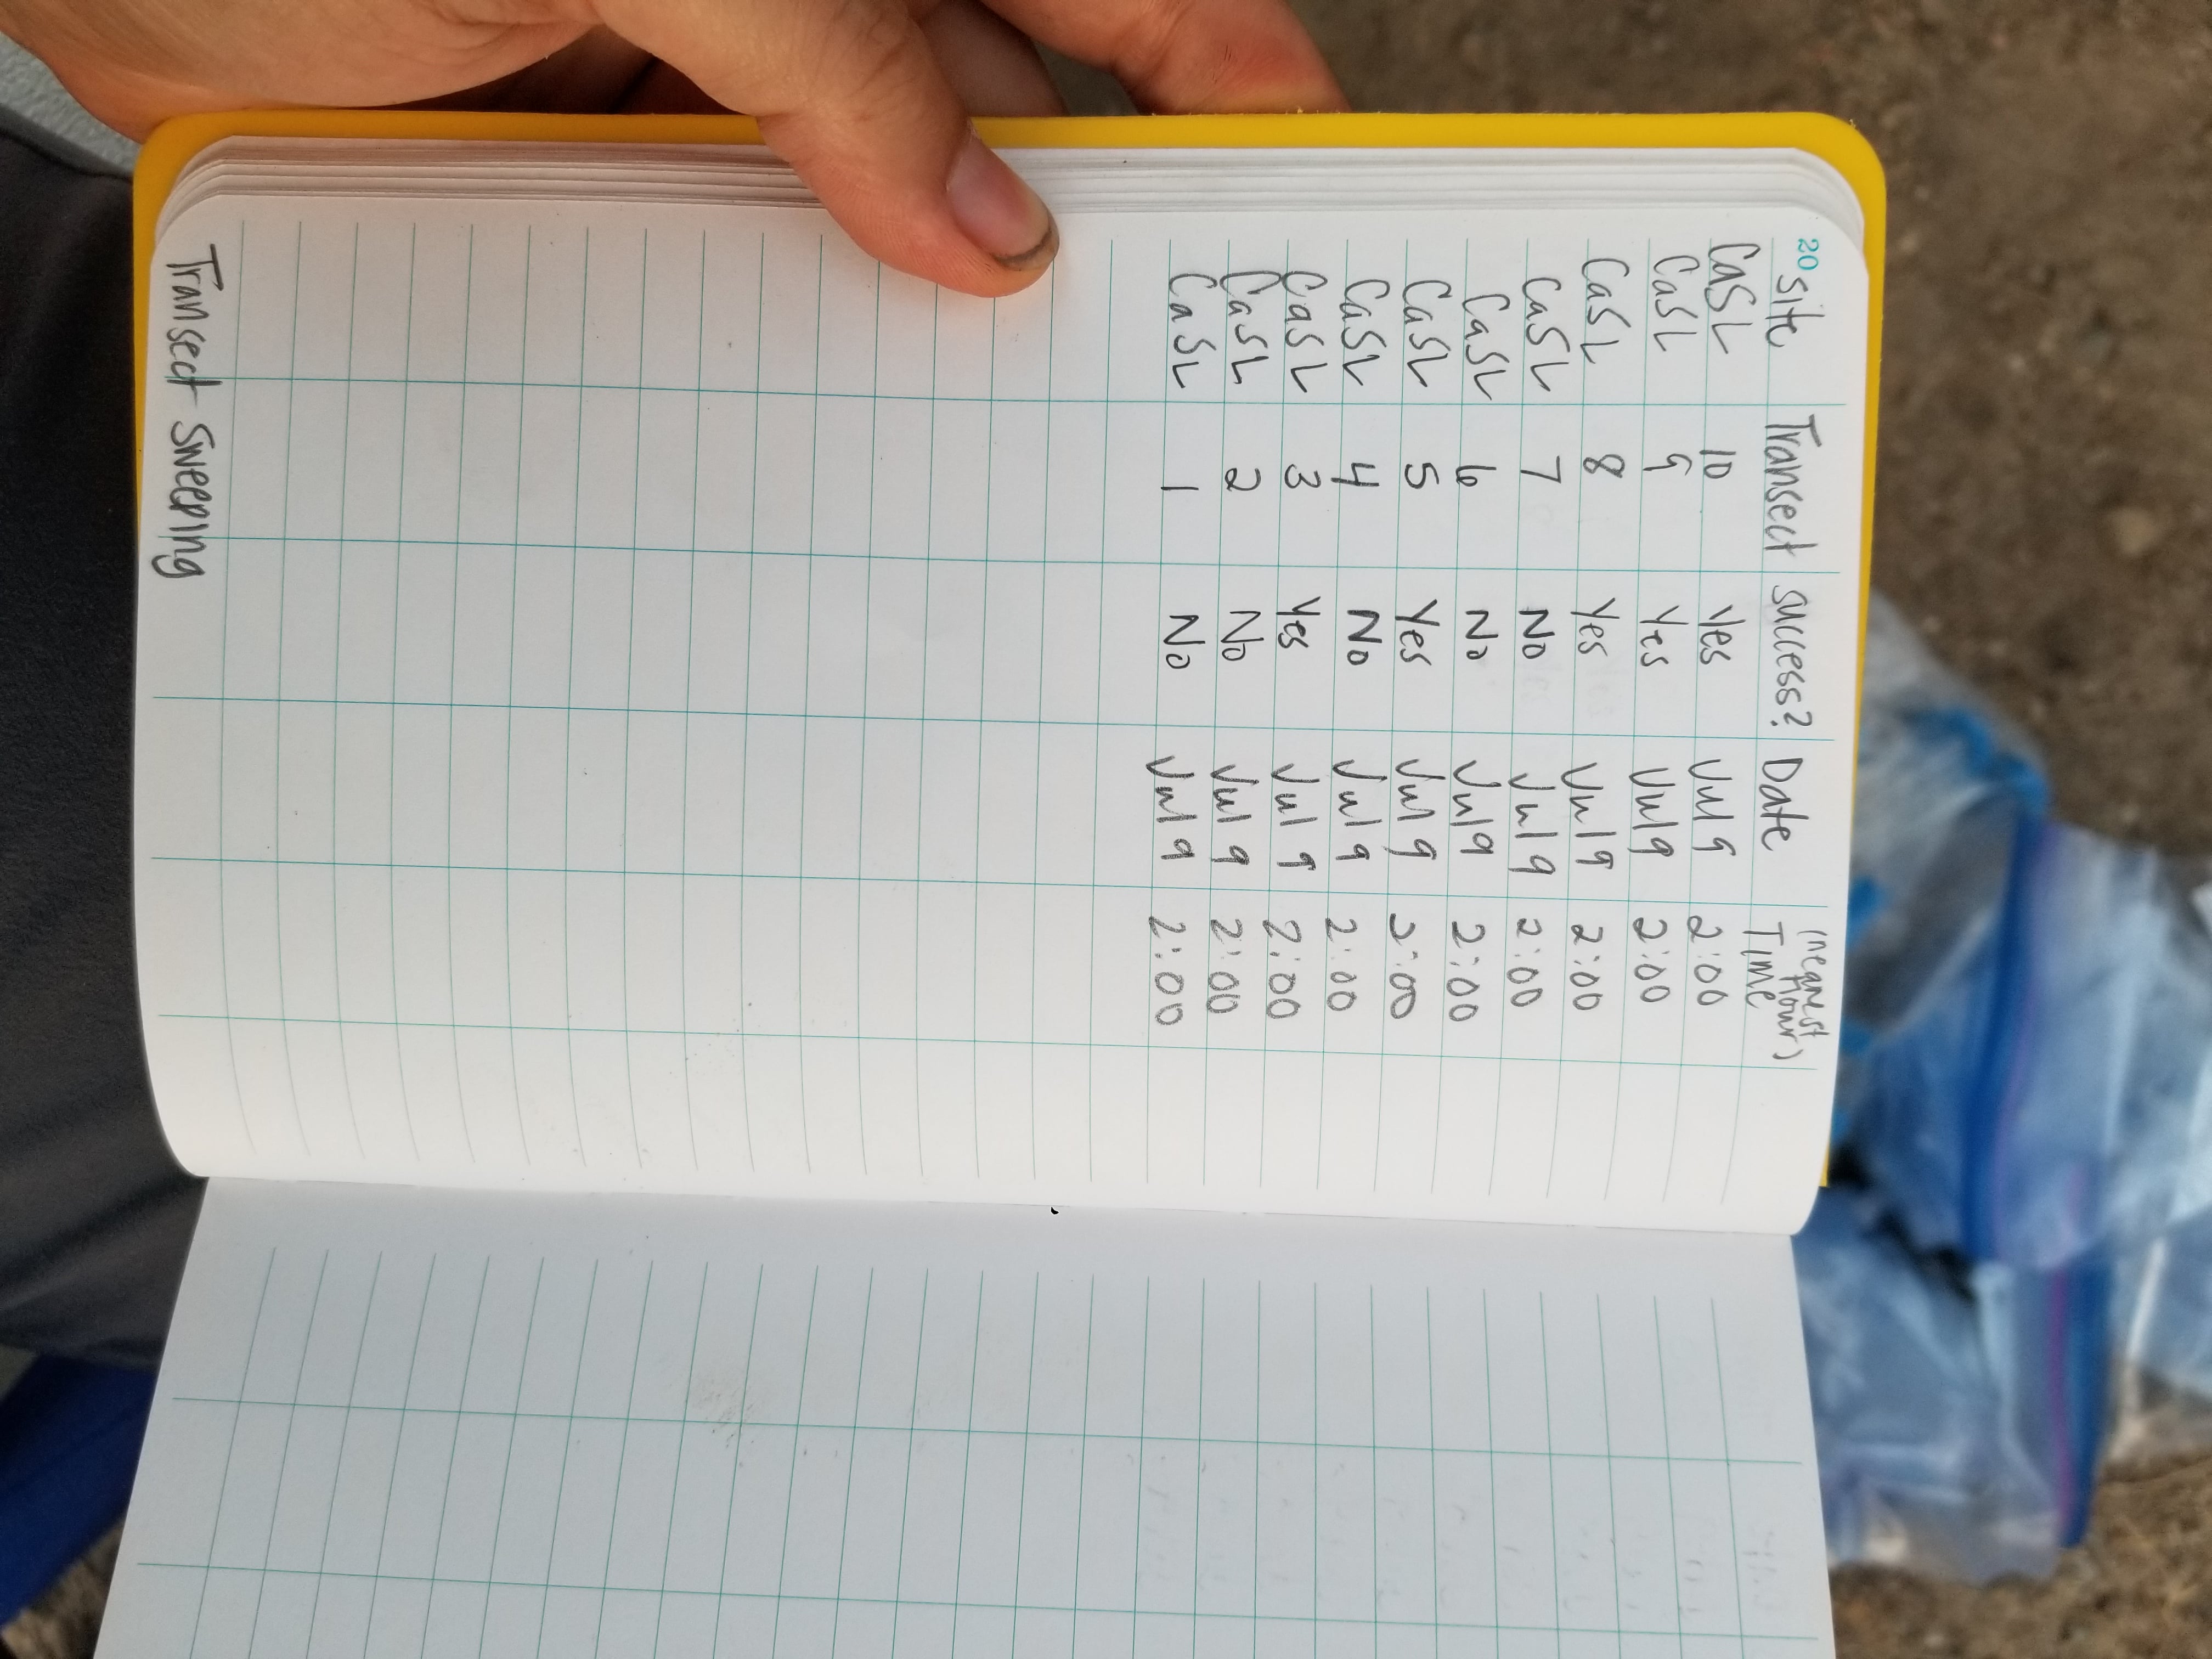 20 Site Transect success? Date Time (nearest hour)
CaSL 10 Yes Jul 9 2:00
CaSL 9 Yes Jul 9 2:00
CaSL 8 Yes Jul 9 2:00
CaSL 7 No Jul 9 2:00
CaSL 6 No Jul 9 2:00
CaSL 5 Yes Jul 9 2:00
CaSL 4 No Jul 9 2:00
CaSL 3 Yes Jul 9 2:00
CaSL 2 No Jul 9 2:00
CaSL 1 No Jul 9 2:00
Transect Sweeping